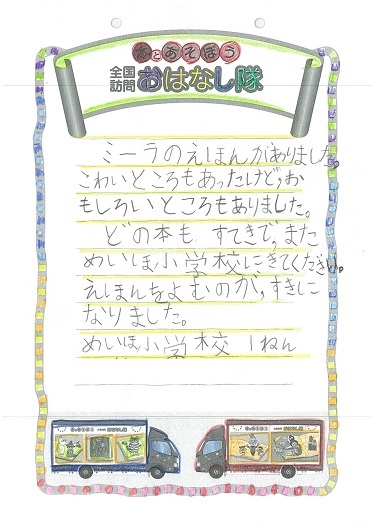 本とあそぼう
全国訪問おはなし隊
ミーラのえほんがありました。
こわいところもあったけど、お
もしろいところもありました。
どの本も すてきで、また
めいほ小学校にきてください。
えほんをよむのが、すきに
なりました。
めいほ小学校 1ねん